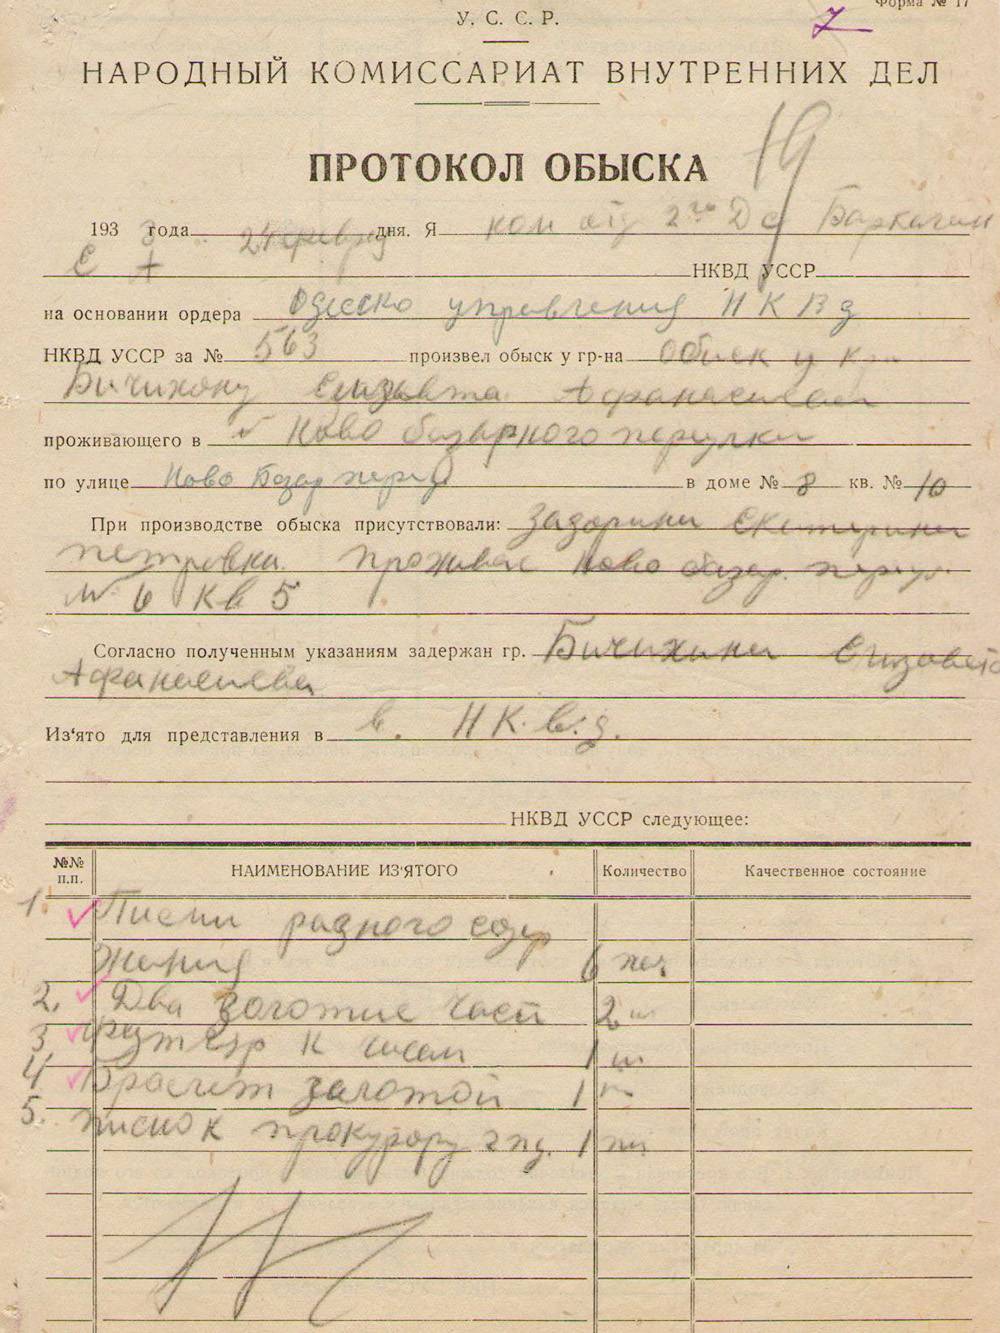 Форма № 17
У. С. С. Р.
7
НАРОДНЫЙ КОМИССАРИАТ ВНУТРЕННИХ ДЕЛ
ПРОТОКОЛ ОБЫСКА
19
193 8 года 24 февр дня. Я ком 2го
НКВД УССР
на основании ордера Одесско управления Н К В д
НКВД УССР за № 563 произвел обыск у гр-на Обиск у
Бичихону Афанасиваи
проживающего в Ново базарного переулки
по улице Ново Базар в доме № 8 кв. № 10
При производстве обыска присутствовали: Задорини Екатерини
Петровки. Проживае Ново базар.
№ 6 кв 5
Согласно полученным указаниям задержан гр. Бичихини Елизовета
Афанасиева
Из'ято для представления в в. Н К. в. д.
НКВД УССР следующее:
№№ п.п. НАИМЕНОВАНИЕ ИЗ'ЯТОГО Количество Качественное состояние
1. Писми разного содер
жания 6
2. Два золотие часи 2 ш
3 к часам 1 ш
4 Браслет золотой 1 ш
5. писмо к прокурору 1